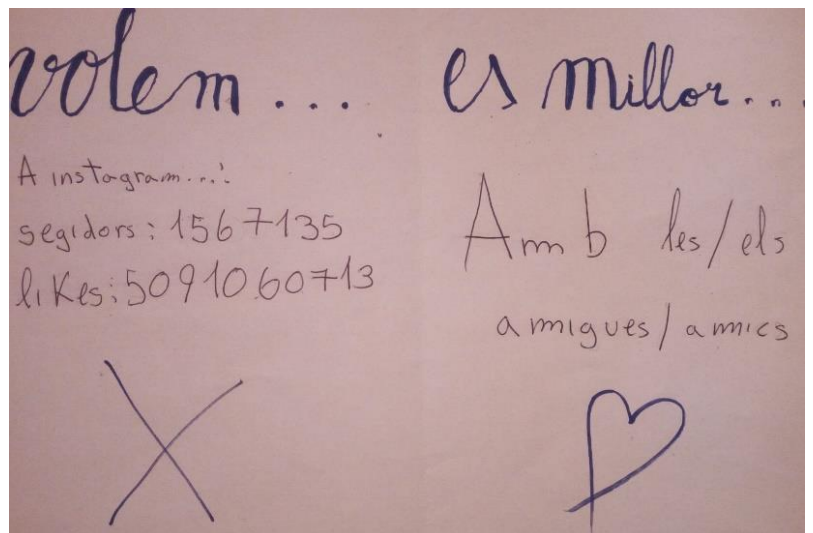 volem...
A instagram...:
segidors: 1567135
likes: 5091060713
es millor...
Amb les/els
amigues/amics